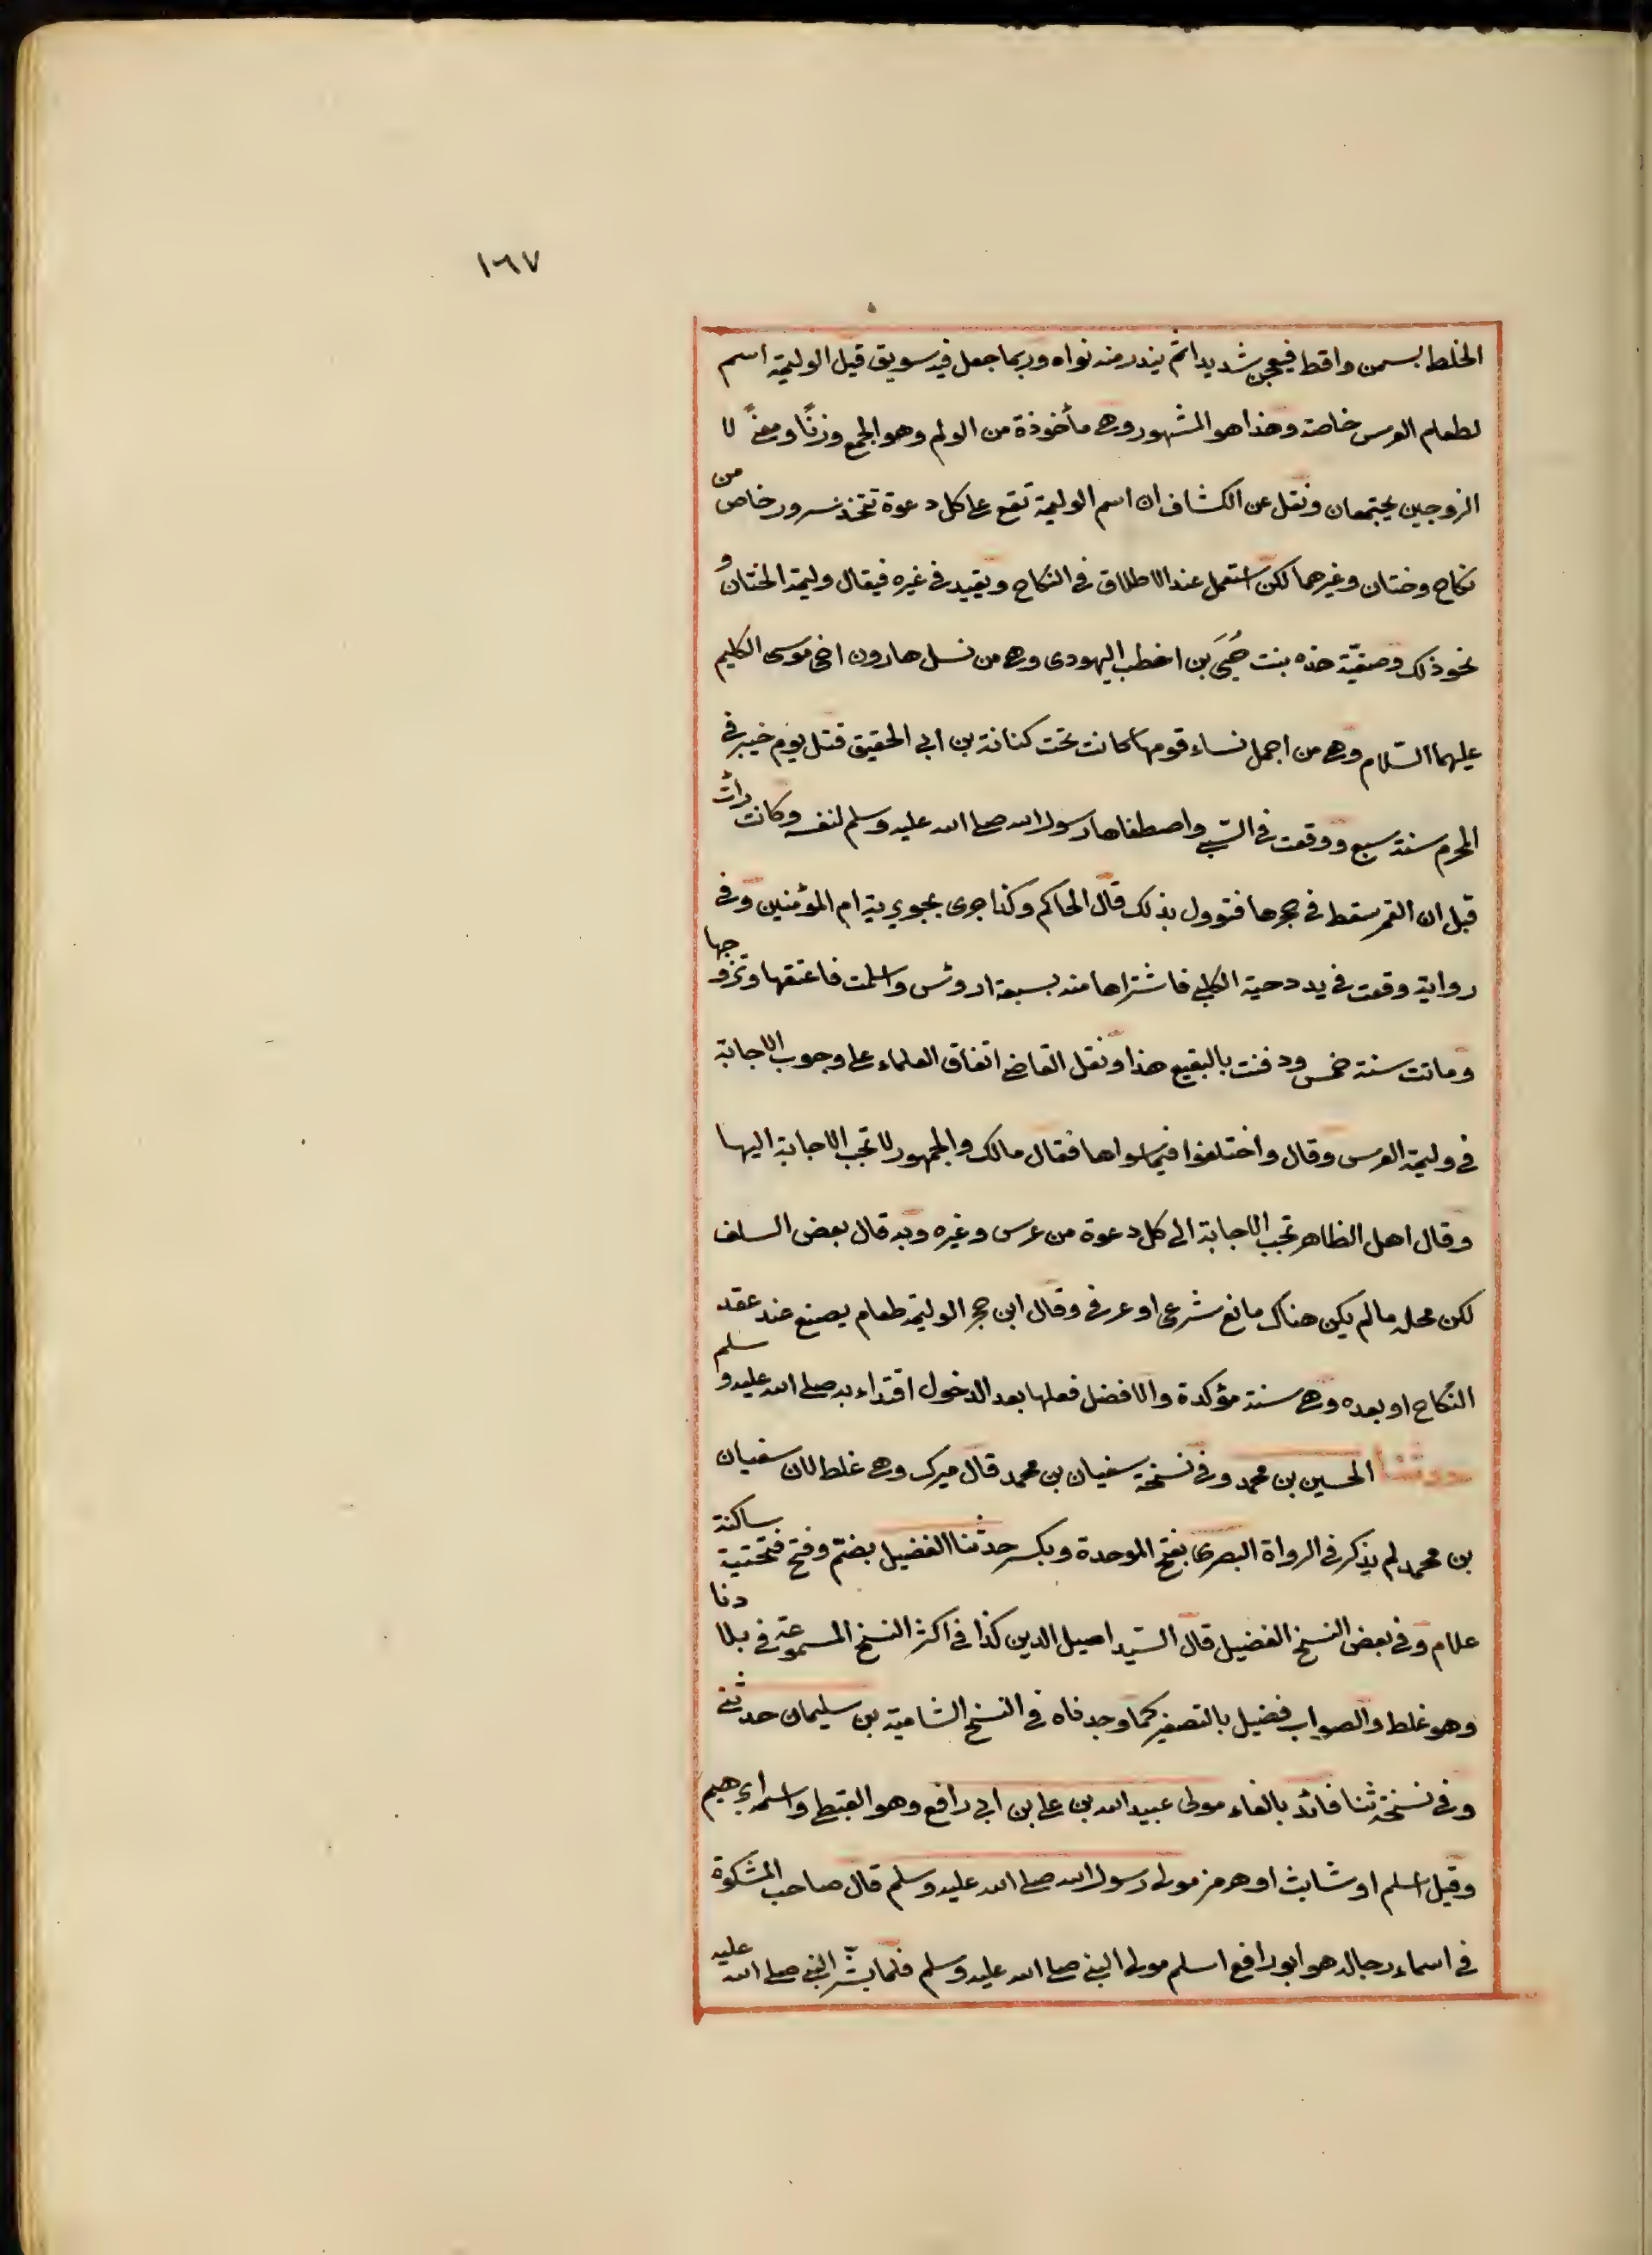 ١٦٧
الخلط بسمن واقط فيعجن شديدا ثم يندر منه نواه وربما جعل فيه سويق قيل الوليمة اسم
لطعام العرس خاصة وهذا هو المشهور وهى مأخوذة من الولم وهو الجمع وزنًا ومعنًى لا
الزوجين يجتمعان ونقل عن الكشاف ان اسم الوليمة تقع على كل دعوة تتخذ لسرور خاص من
نكاح وختان وغيرهما لكن استعمل عند الاطلاق فى النكاح ويقيد فى غيره فيقال وليمة الختان و
نحو ذلك وصفيّة هذه بنت حُيَى بن اخطب اليهودى وهى من نسل هارون اخى موسى الكليم
عليهما السّلام وهى من اجمل نساء قومها كانت تحت كنانة بن ابى الحقيق قتل يوم خيبر فى
المحرم سنة سبع ووقعت فى السّبى واصطفاها رسول الله صلى الله عليه وسلم لنفسه وكانت رأت
قبل ان القمر سقط فى حجرها فتوول بذلك قال الحاكم وكذا جرى بجويرية ام المؤمنين وفى
رواية وقعت فى يد دحية الكلبى فاشتراها منه بسبعة ارؤس واسلمت فاعتقها وتزوجها
وماتت سنة خمس ودفنت بالبقيع هذا ونقل القاضى اتفاق العلماء على وجوب الاجابة
فى وليمة العرس وقال واختلفوا فيما سواها فقال مالك والجمهور لا تجب الاجابة اليها
وقال اهل الظاهر تجب الاجابة الى كل دعوة من عرس وغيره وبه قال بعض السلف
لكن محله ما لم يكن هناك مانع شرعى او عرفى وقال ابن حجر الوليمة طعام يصنع عند عقد
النكاح او بعده وهى سنة مؤكدة والافضل فعلها بعد الدخول اقتداء به صلى الله عليه وسلم
حدثنا الحسين بن محمد وفى نسخة سفيان بن محمد قال ميرك وهى غلط لان سفيان
بن محمد لم يذكر فى الرواة البصرى بفتح الموحدة وبكسر حدثنا الفضيل بضمّ وفتح فتحتية ساكنة
علام وفى بعض النسخ الفضيل قال السّيد اصيل الدين كذا فى اكثر النسخ المسموعة فى بلادنا
وهو غلط والصواب فضيل بالتصغير كما وجدناه فى النسخ الشامية بن سليمان حدثنى
وفى نسخة ثنا فائد بالفاء مولى عبيد الله بن على بن ابى رافع وهو القبطى واسمه ابراهيم
وقيل اسلم او ثابت او هرمز مولى رسول الله صلى الله عليه وسلم قال صاحب المشكوة
فى اسماء رجاله هو ابو رافع اسلم مولى النبى صلى الله عليه وسلم فلما بشّر النبى صلى الله عليه